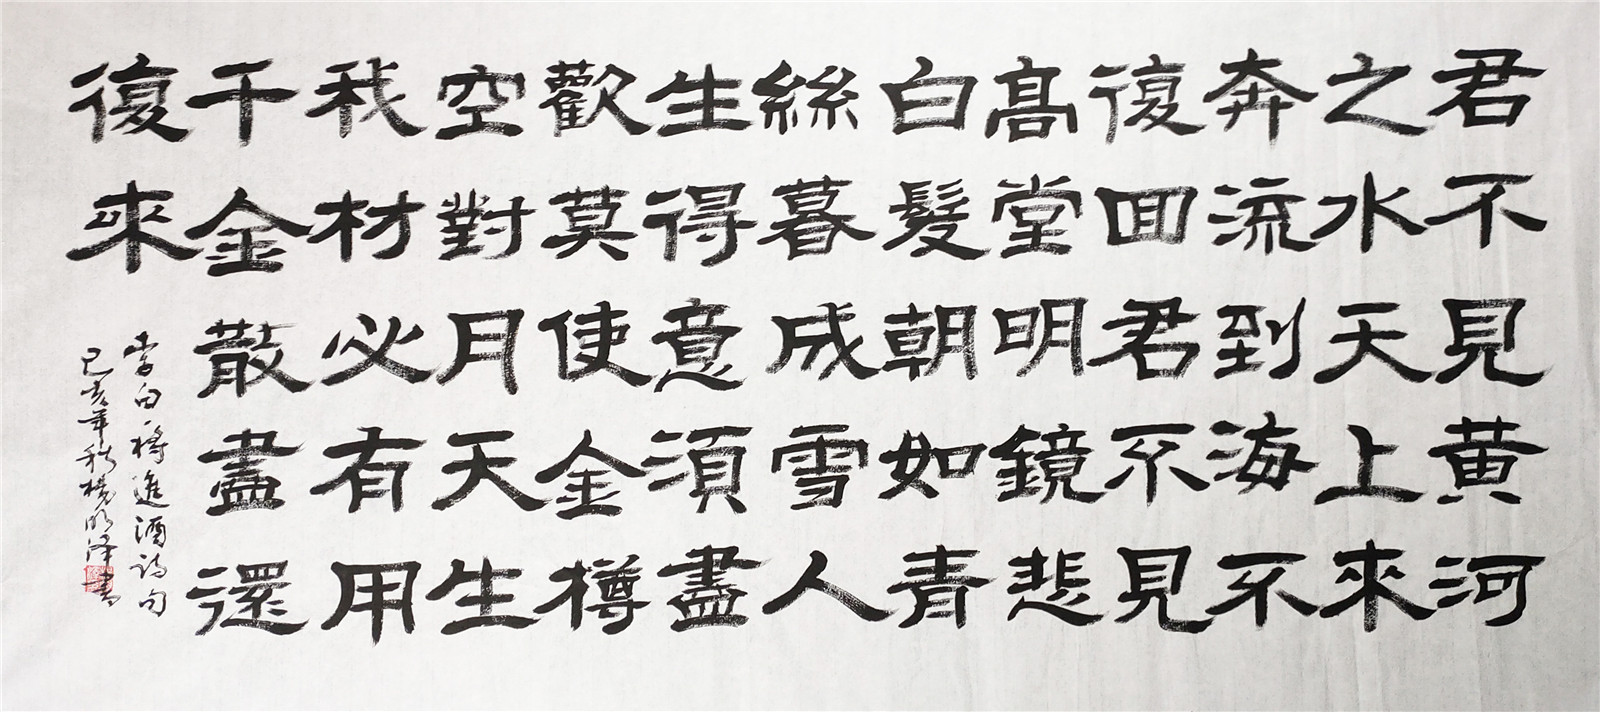 君不見黄河
之水天上來
奔流到海不
復囬君不見
髙堂明鏡悲
白髮朝如青
絲暮成雪人
生得意須盡
歡莫使金樽
空對月天生
我材必有用
千金散盡還
復來
李白将進酒詩句
己亥年秋楊明泽書